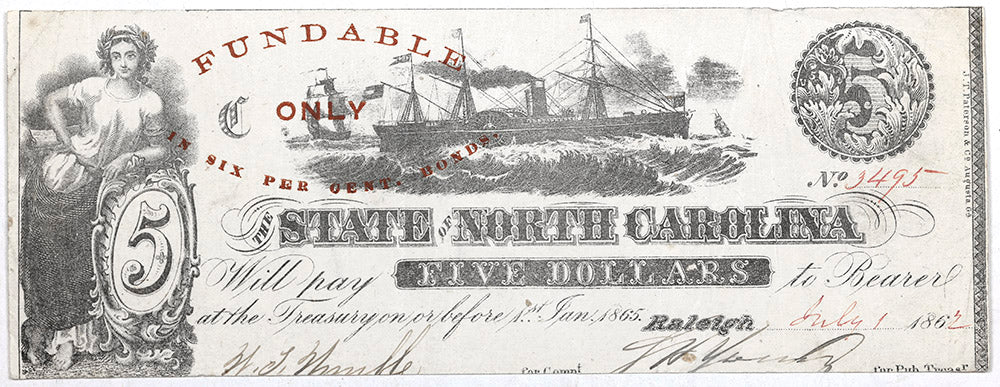 FUNDABLE
C ONLY
IN SIX PER CENT. BONDS.
5
J. T. Paterson & Co. Augusta Ga
No. 3495
THE STATE OF NORTH CAROLINA
5
Will pay FIVE DOLLARS to Bearer
at the Treasury on or before 1st Jan. 1865. Raleigh July 1 1862
for Compt for Pub. Treasr